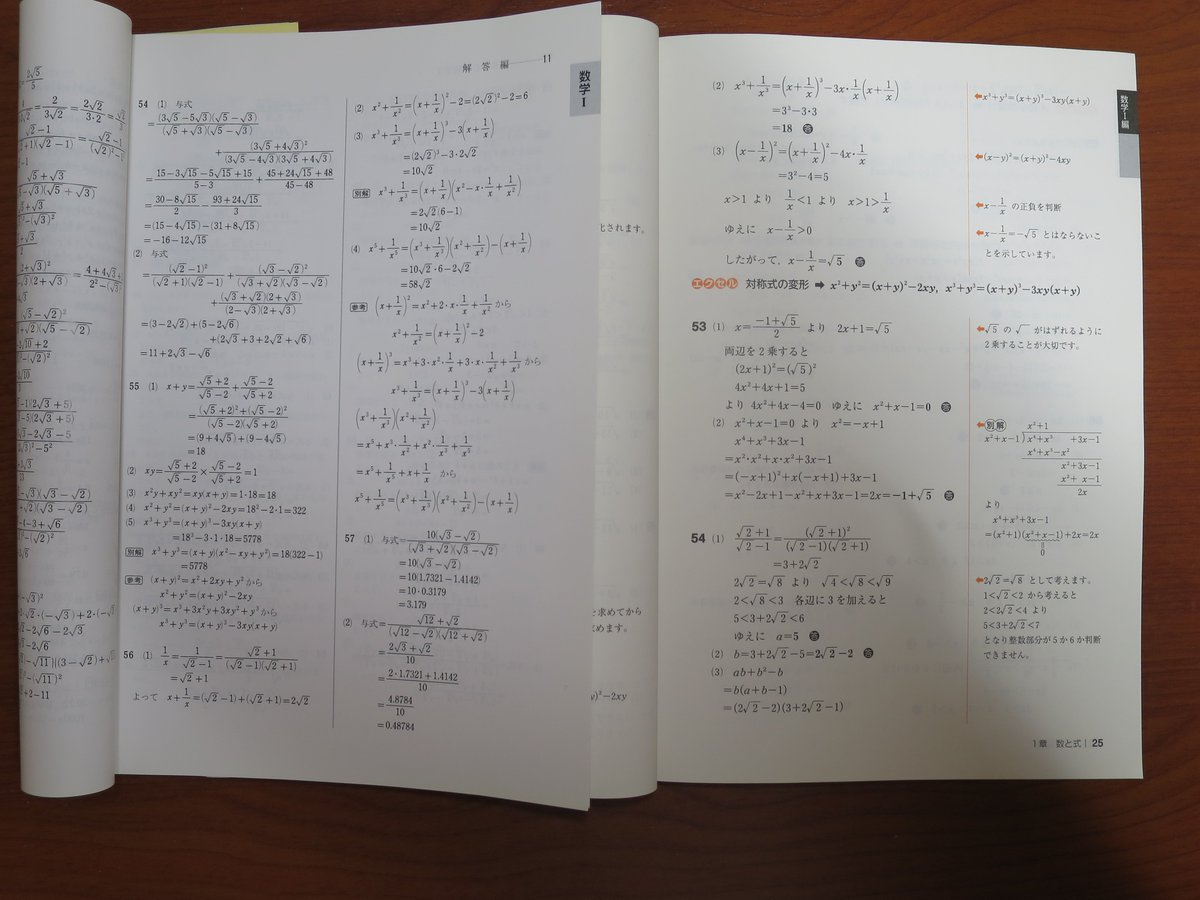 解答編 11
数学Ⅰ
54 (1) 与式
=\frac{(3√5-5√3)(√5-√3)}{(√5+√3)(√5-√3)}
+\frac{(3√5+4√3)^2}{(3√5-4√3)(3√5+4√3)}
=\frac{15-3√15-5√15+15}{5-3}+\frac{45+24√15+48}{45-48}
=\frac{30-8√15}{2}-\frac{93+24√15}{3}
=(15-4√15)-(31+8√15)
=-16-12√15
(2) 与式
=\frac{(√2-1)^2}{(√2+1)(√2-1)}+\frac{(√3-√2)^2}{(√3+√2)(√3-√2)}
+\frac{(√3+√2)(2+√3)}{(2-√3)(2+√3)}
=(3-2√2)+(5-2√6)
+(2√3+3+2√2+√6)
=11+2√3-√6
55 (1) x+y=\frac{√5+2}{√5-2}+\frac{√5-2}{√5+2}
=\frac{(√5+2)^2+(√5-2)^2}{(√5-2)(√5+2)}
=(9+4√5)+(9-4√5)
=18
(2) xy=\frac{√5+2}{√5-2}×\frac{√5-2}{√5+2}=1
(3) x²y+xy²=xy(x+y)=1·18=18
(4) x²+y²=(x+y)²-2xy=18²-2·1=322
(5) x³+y³=(x+y)³-3xy(x+y)
=18³-3·1·18=5778
別解 x³+y³=(x+y)(x²-xy+y²)=18(322-1)
=5778
参考 (x+y)²=x²+2xy+y²から
x²+y²=(x+y)²-2xy
(x+y)³=x³+3x²y+3xy²+y³から
x³+y³=(x+y)³-3xy(x+y)
56 (1) \frac{1}{x}=\frac{1}{√2-1}=\frac{√2+1}{(√2-1)(√2+1)}
=√2+1
よって x+\frac{1}{x}=(√2-1)+(√2+1)=2√2
(2) x²+\frac{1}{x²}=(x+\frac{1}{x})²-2=(2√2)²-2=6
(3) x³+\frac{1}{x³}=(x+\frac{1}{x})³-3(x+\frac{1}{x})
=(2√2)³-3·2√2
=10√2
別解 x³+\frac{1}{x³}=(x+\frac{1}{x})(x²-x·\frac{1}{x}+\frac{1}{x²})
=2√2(6-1)
=10√2
(4) x⁵+\frac{1}{x⁵}=(x³+\frac{1}{x³})(x²+\frac{1}{x²})-(x+\frac{1}{x})
=10√2·6-2√2
=58√2
参考 (x+\frac{1}{x})²=x²+2·x·\frac{1}{x}+\frac{1}{x²}から
x²+\frac{1}{x²}=(x+\frac{1}{x})²-2
(x+\frac{1}{x})³=x³+3·x²·\frac{1}{x}+3·x·\frac{1}{x²}+\frac{1}{x³}から
x³+\frac{1}{x³}=(x+\frac{1}{x})³-3(x+\frac{1}{x})
(x³+\frac{1}{x³})(x²+\frac{1}{x²})
=x⁵+x³·\frac{1}{x²}+x²·\frac{1}{x³}+\frac{1}{x⁵}
=x⁵+\frac{1}{x⁵}+x+\frac{1}{x} から
x⁵+\frac{1}{x⁵}=(x³+\frac{1}{x³})(x²+\frac{1}{x²})-(x+\frac{1}{x})
57 (1) 与式=\frac{10(√3-√2)}{(√3+√2)(√3-√2)}
=10(√3-√2)
=10(1.7321-1.4142)
=10·0.3179
=3.179
(2) 与式=\frac{√12+√2}{(√12-√2)(√12+√2)}
=\frac{2√3+√2}{10}
=\frac{2·1.7321+1.4142}{10}
=\frac{4.8784}{10}
=0.48784
化されます。
を求めてから
めます。
y)²-2xy
数学Ⅰ編
(2) x³+\frac{1}{x³}=(x+\frac{1}{x})³-3x·\frac{1}{x}(x+\frac{1}{x})
=3³-3·3
=18 答
←x³+y³=(x+y)³-3xy(x+y)
(3) (x-\frac{1}{x})²=(x+\frac{1}{x})²-4x·\frac{1}{x}
=3²-4=5
←(x-y)²=(x+y)²-4xy
x>1 より \frac{1}{x}<1 より x>1>\frac{1}{x}
←x-\frac{1}{x} の正負を判断
ゆえに x-\frac{1}{x}>0
←x-\frac{1}{x}=-√5 とはならないこ
とを示しています。
したがって, x-\frac{1}{x}=√5 答
エクセル 対称式の変形 ➡ x²+y²=(x+y)²-2xy, x³+y³=(x+y)³-3xy(x+y)
53 (1) x=\frac{-1+√5}{2} より 2x+1=√5
両辺を2乗すると
(2x+1)²=(√5)²
4x²+4x+1=5
より 4x²+4x-4=0 ゆえに x²+x-1=0 答
←√5 の √ がはずれるように
2乗することが大切です。
(2) x²+x-1=0 より x²=-x+1
x⁴+x³+3x-1
=x²·x²+x·x²+3x-1
=(-x+1)²+x(-x+1)+3x-1
=x²-2x+1-x²+x+3x-1=2x=-1+√5 答
←別解
x²+1
x²+x-1)x⁴+x³ +3x-1
x⁴+x³-x²
x²+3x-1
x²+ x-1
2x
より
x⁴+x³+3x-1
=(x²+1)(x²+x-1)+2x=2x
0
54 (1) \frac{√2+1}{√2-1}=\frac{(√2+1)²}{(√2-1)(√2+1)}
=3+2√2
2√2=√8 より √4<√8<√9
2<√8<3 各辺に3を加えると
5<3+2√2<6
ゆえに a=5 答
(2) b=3+2√2-5=2√2-2 答
(3) ab+b²-b
=b(a+b-1)
=(2√2-2)(3+2√2-1)
←2√2=√8 として考えます。
1<√2<2 から考えると
2<2√2<4 より
5<3+2√2<7
となり整数部分が5か6か判断
できません。
1章 数と式 25